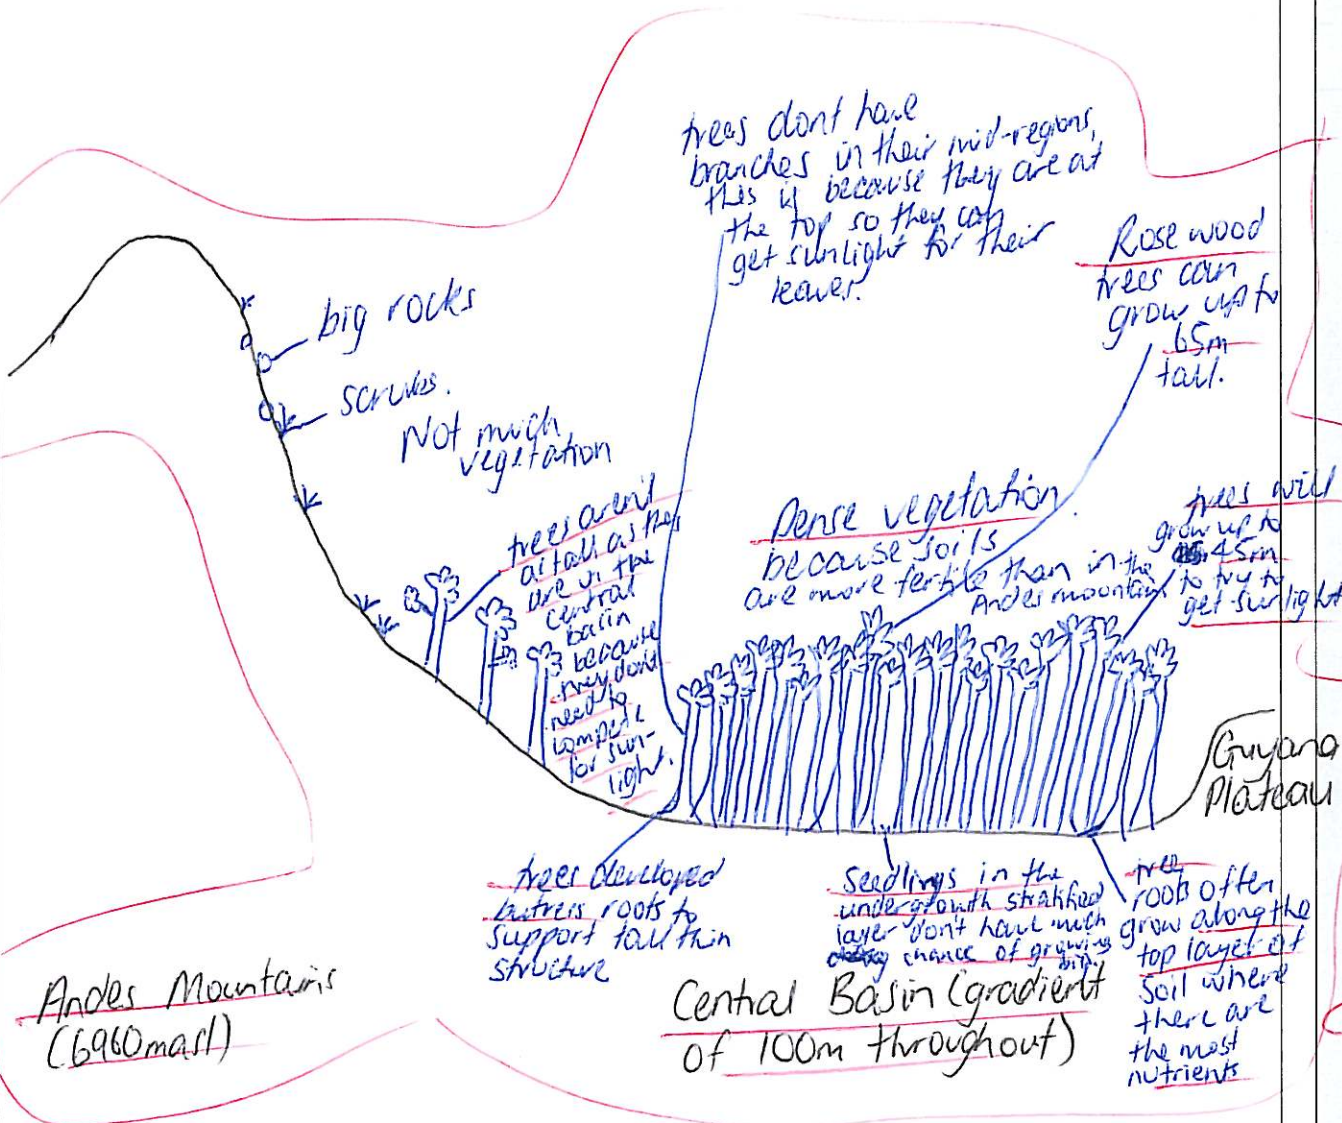 trees dont have
branches in their mid-regions,
this is because they are at
the top so they can
get sunlight for their
leaves.
Rose wood
trees can
grow up to
65m
tall.
big rocks
scrubs.
Not much
vegetation
trees aren't
as tall as they
are in the
central
basin
because
they don't
need to
compete
for sun-
light.
Dense vegetation
because soils
are more fertile than in the
Andes mountain
trees will
grow up to
45m
to try to
get sunlight
Guyana
Plateau
trees developed
butress roots to
support tall thin
structure
Seedlings in the
undergrowth stratified
layer don't have much
chance of growing
big.
tree
roots often
grow along the
top layer of
soil where
there are
the most
nutrients
Andes Mountains
(6960masl)
Central Basin (gradient
of 100m throughout)